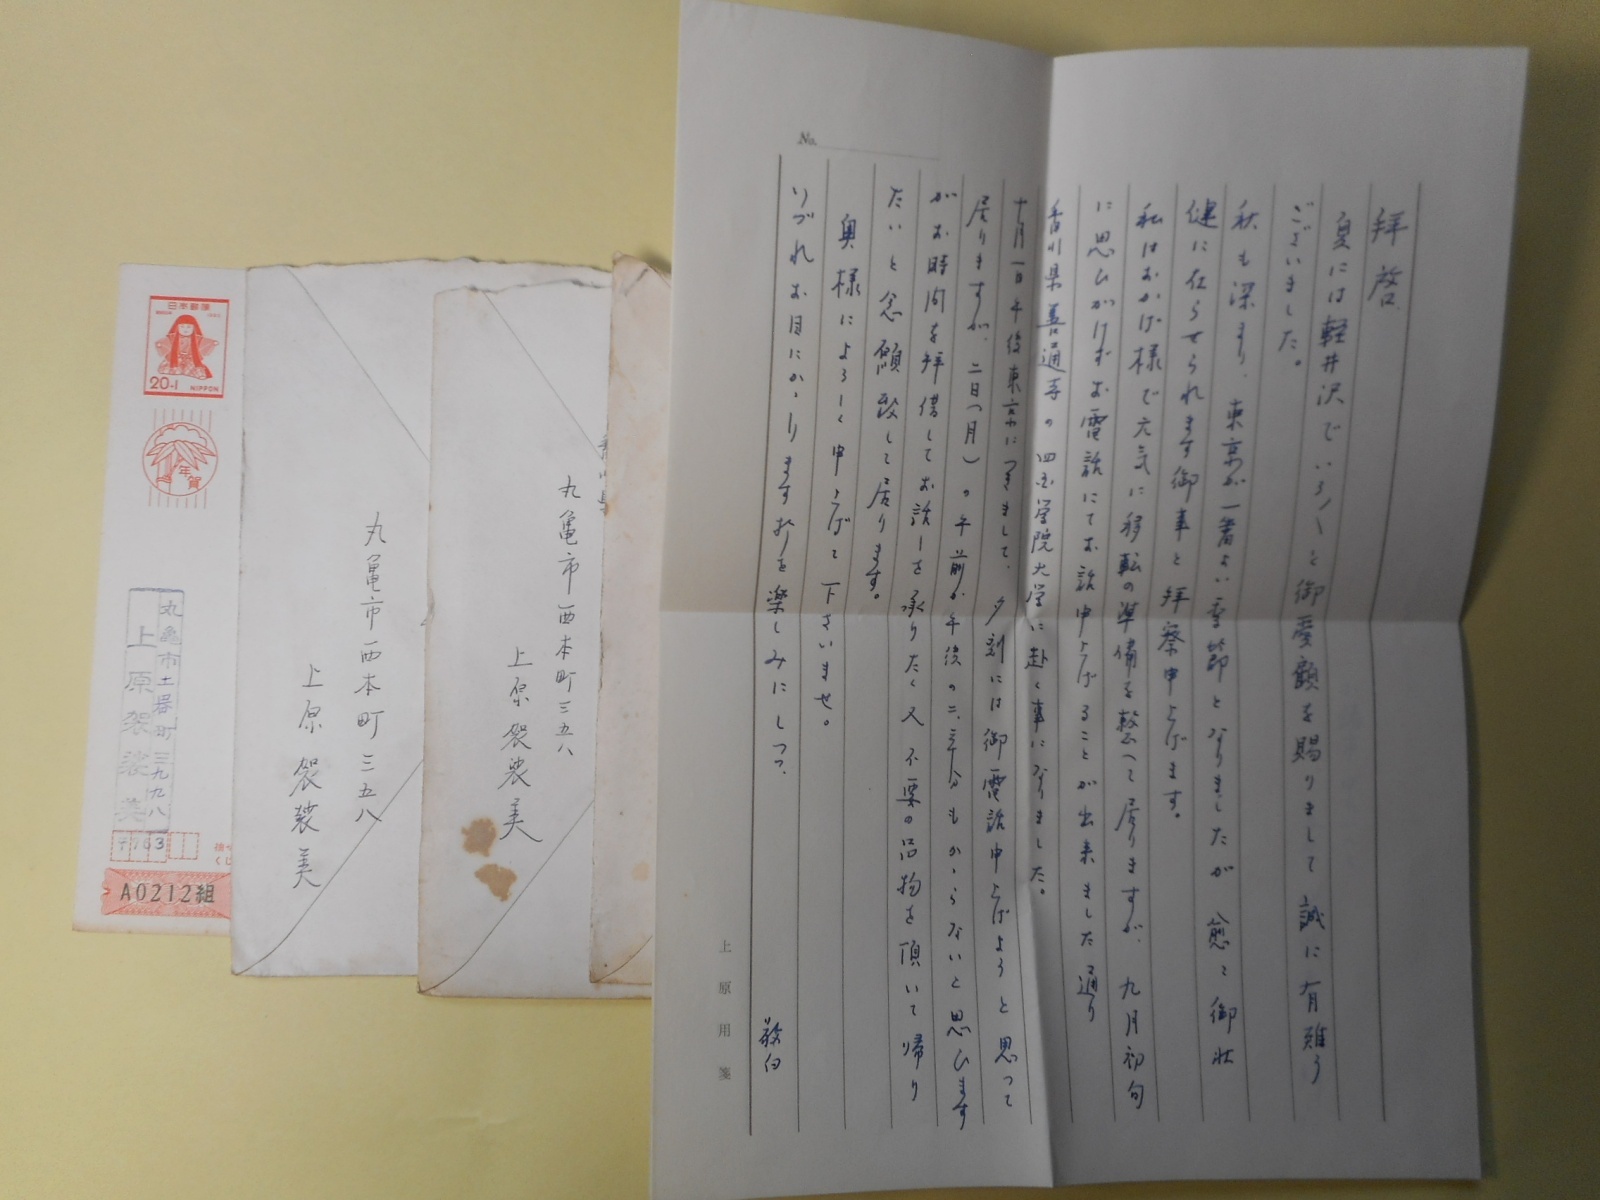 拝啓
夏には軽井沢でいろ〱と御愛顧を賜りまして誠に有難う
ございました。
秋も深まり、東京が一番よい季節となりましたが 愈々御壮
健に在らせられます御事と拝察申上げます。
私はおかげ様で元気に移転の準備を整へて居りますが、九月初旬
に思ひがけずお電話にてお話申上げることが出来ました通り
香川県善通寺の四国学院大学に赴く事になりました。
十月一日午後東京に着きまして、夕刻には御電話申上げようと思つて
居りますが、二日(月)の午前か午後の二、三十分もかゝらないと思ひます
がお時間を拝借してお話しを承りたく又不要の品物を頂いて帰り
たいと念願致して居ります。
奥様によろしく申上げて下さいませ。
いづれお目にかゝります折を楽しみにしつつ、
敬白
No.
上原用箋
香川県
丸亀市西本町三五八
上原袈裟美
丸亀市西本町三五八
上原袈裟美
日本郵便
20+1 NIPPON
年賀
丸亀市土器町三九九八
上原袈裟美
〒763
A0212組